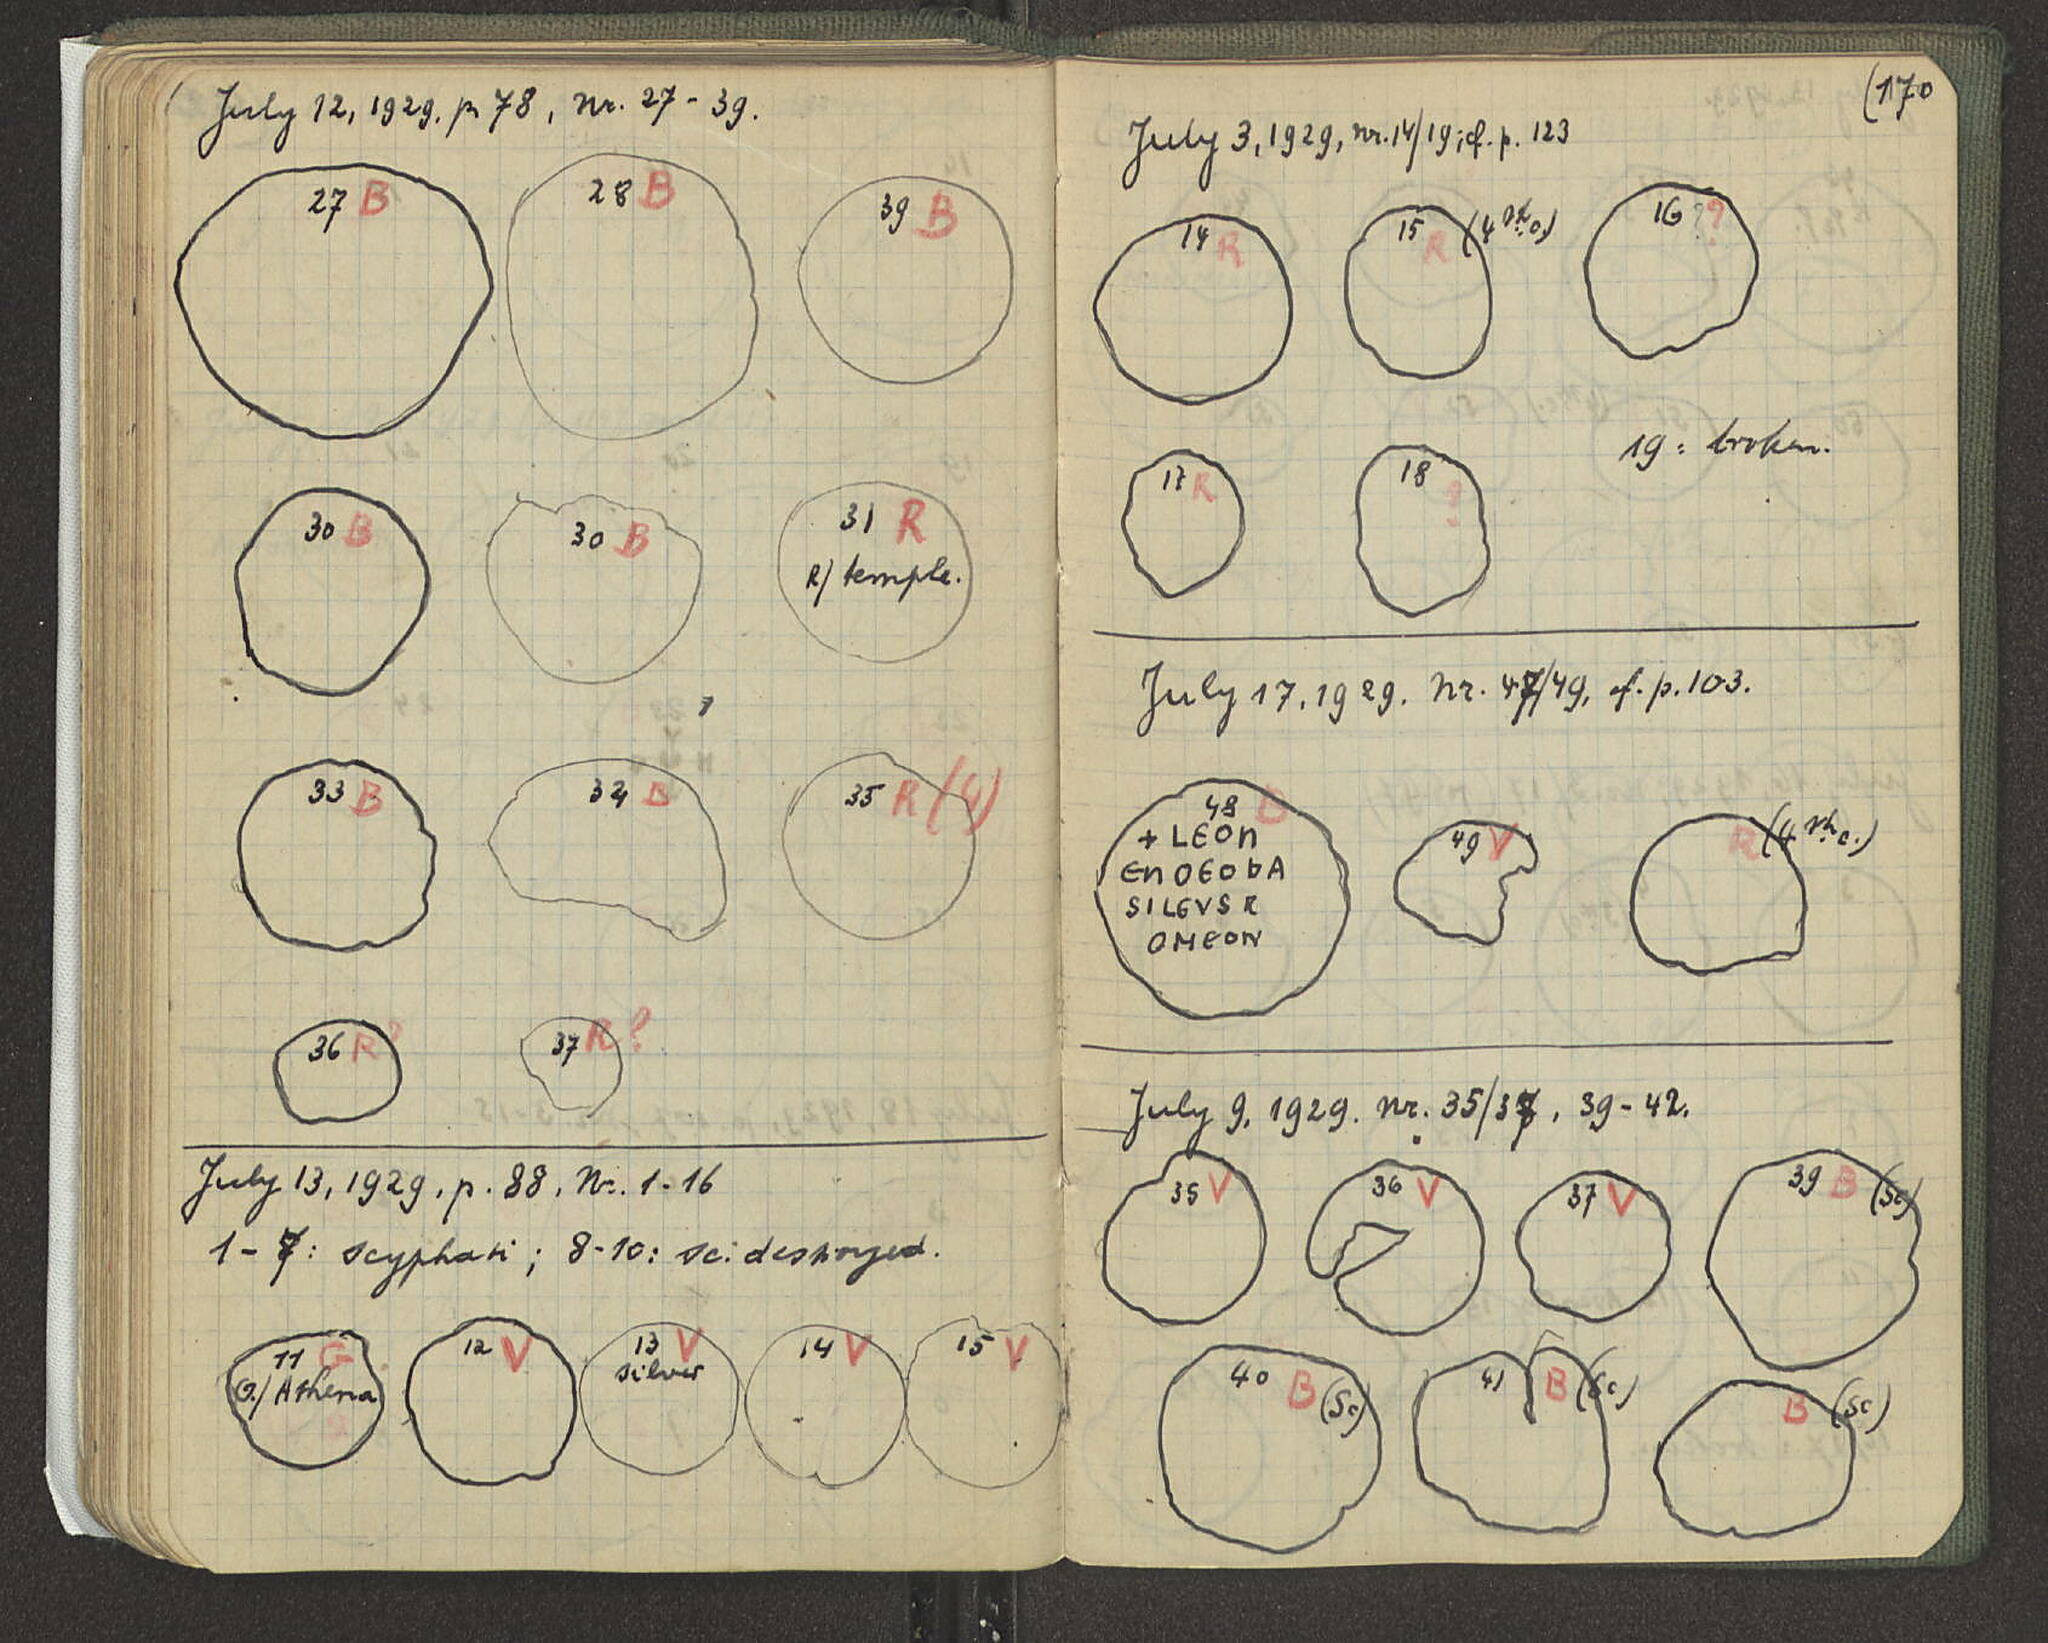 July 12, 1929. p 78, Nr. 27 - 39.
27 B
28 B
39 B
30 B
30 B
31 R
R/ temple.
33 B
34 B
35 R (4)
36 R?
37 R?
July 13, 1929, p. 88, Nr. 1-16
1-7: scyphati; 8-10: sc. destroyed.
11 G
O/ Athena
12 V
13 V
silver
14 V
15 V
(170
July 3, 1929, nr. 14/19; cf. p. 123
14 R
15 R (4th c.)
16 ??
17 R
18 ?
19: broken.
July 17, 1929. Nr. 47/49, cf. p. 103.
48 B
+ LEON
ЄN ΘЄO bA
SILЄVS R
OMЄON
49 V
R (4th c.)
July 9, 1929. Nr. 35/37, 39-42.
35 V
36 V
37 V
39 B (Sc)
40 B (Sc)
41 B (Sc)
B (Sc)